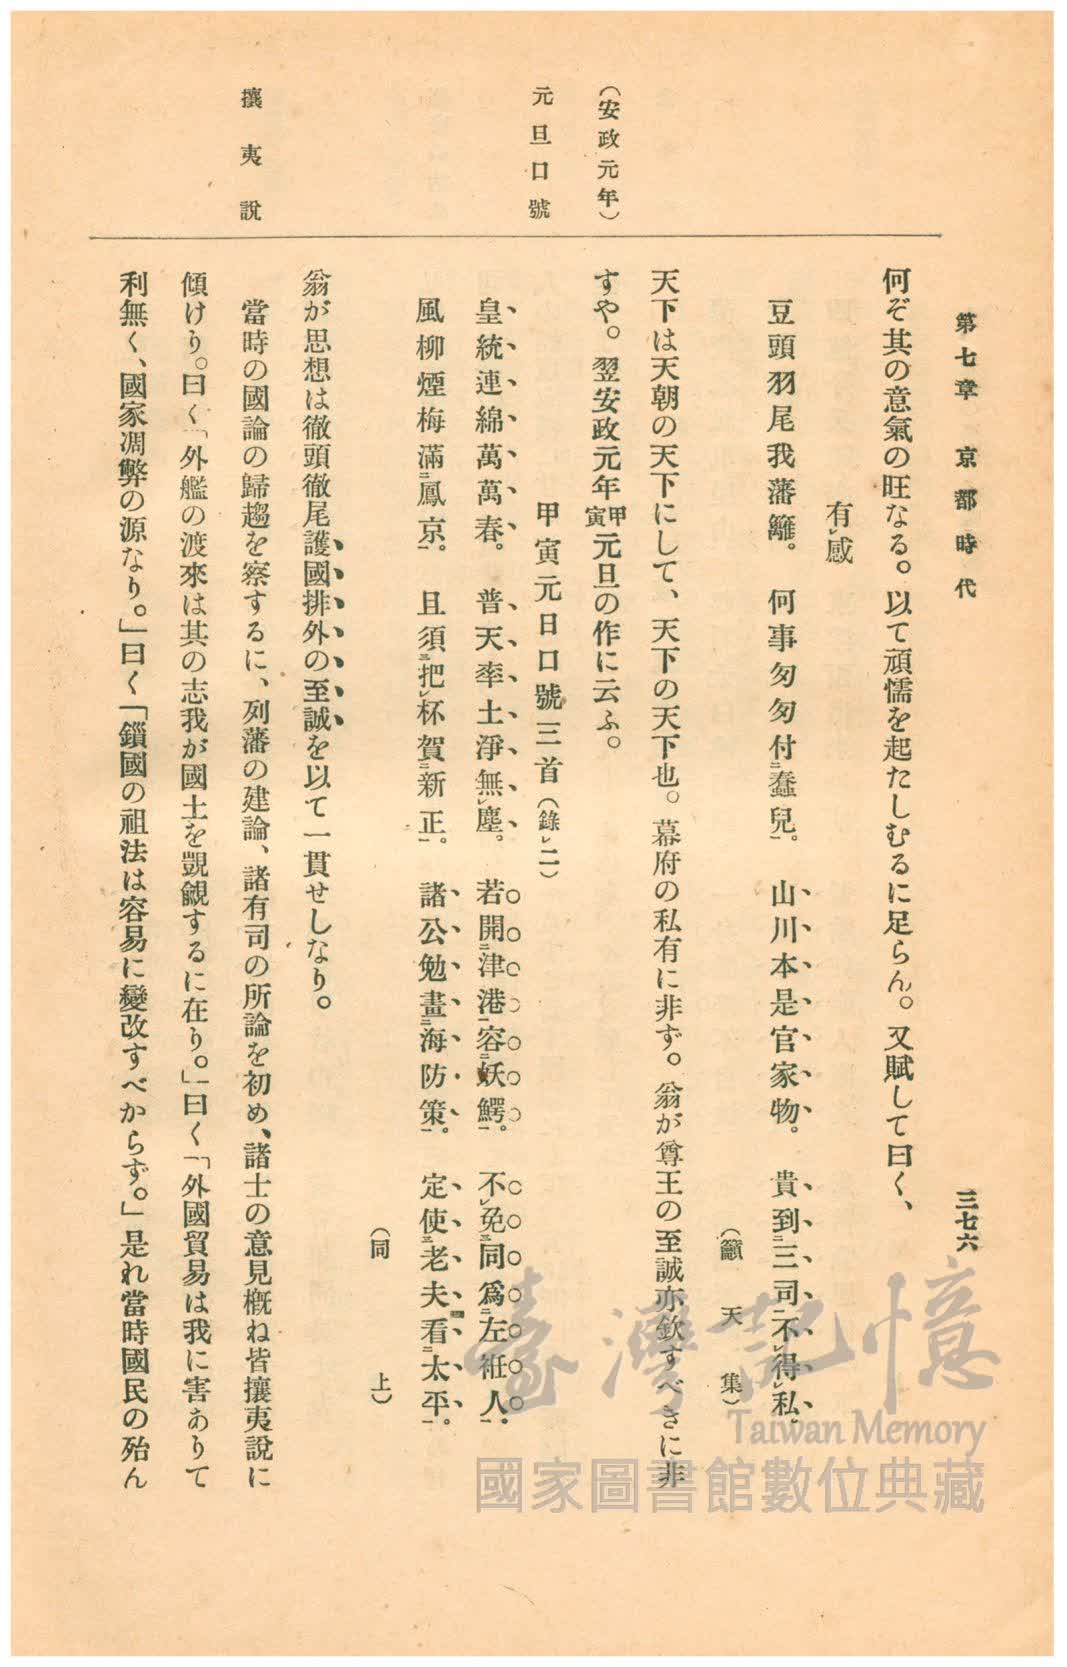 第七章　京都時代　三七六
何ぞ其の意氣の旺なる。以て頑懦を起たしむるに足らん。又賦して曰く、
有レ感
豆頭羽尾我藩籬。　何事匆匆付二蠢兒一。　山川本是官家物。　貴到二三司一不レ得レ私。
（籲天集）
天下は天朝の天下にして、天下の天下也。幕府の私有に非ず。翁が尊王の至誠亦欽すべきに非
（安政元年）
すや。翌安政元年甲寅元旦の作に云ふ。
元旦口號
甲寅元日口號三首（錄レ二）
皇統連綿萬萬春。　普天率土淨無レ塵。　若開二津港一容二妖鰐一。　不レ免三同爲二左袵人一。
風柳煙梅滿二鳳京一。　且須三把レ杯賀二新正一。　諸公勉畫二海防策一。　定使三老夫看二太平一。
（同上）
翁が思想は徹頭徹尾護國排外の至誠を以て一貫せしなり。
攘夷說
當時の國論の歸趨を察するに、列藩の建論、諸有司の所論を初め、諸士の意見槪ね皆攘夷說に
傾けり。曰く「外艦の渡來は其の志我が國土を覬覦するに在り。」曰く「外國貿易は我に害ありて
利無く、國家凋弊の源なり。」曰く「鎖國の祖法は容易に變改すべからず。」是れ當時國民の殆ん
臺灣記憶
Taiwan Memory
國家圖書館數位典藏